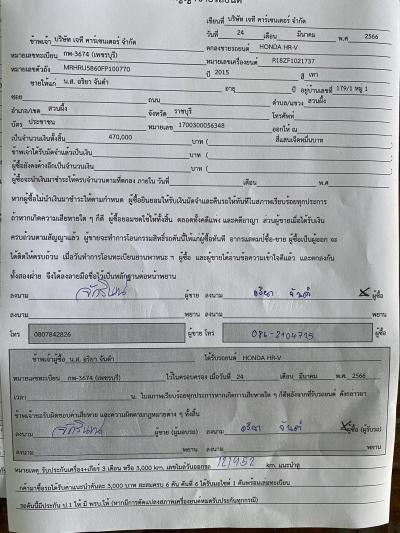 เขียนที่ บริษัท เจที คาร์เซนเตอร์ จำกัด
วันที่ 24 เดือน มีนาคม พ.ศ 2566
ข้าพเจ้า บริษัท เจที คาร์เซนเตอร์ จำกัด
ตกลงขายรถยนต์ HONDA HR-V
หมายเลขทะเบียน กพ-3674 (เพชรบุรี) หมายเลขเครื่องยนต์ R18ZF1021737
หมายเลขตัวถัง MRHRU5860FP100770 ปี 2015 สี เทา
ขายให้แก่ น.ส. อริยา จันดำ อายุ ปี อยู่บ้านเลขที่ 179/1 หมู่ 1
ซอย ถนน ตำบล/แขวง สวนผึ้ง
อำเภอ/เขต สวนผึ้ง จังหวัด ราชบุรี โทรศัพท์
บัตร ประชาชน หมายเลข 1700300056348 ออกให้ ณ
เป็นจำนวนเงินทั้งสิ้น 470,000 บาท ( สี่แสนเจ็ดหมื่นบาท
ข้าพเจ้าได้รับมัดจำแล้วเป็นเงิน บาท (
ผู้ซื้อยังคงค้างอีกเป็นจำนวนเงิน บาท (
ผู้ซื้อจะนำเงินมาชำระให้ครบจำนวนตามที่ตกลง ภายใน วันที่ เดือน พ.ศ
หากผู้ซื้อไม่นำเงินมาชำระให้ตามกำหนด ผู้ซื้อยินยอมให้ริบเงินมัดจำและคืนรถให้ทันทีในสภาพเรียบร้อยทุกประการ
ถ้าหากเกิดความเสียหายใด ๆ ก็ดี ผู้ซื้อยอมชดใช้ให้ทั้งสิ้น ตลอดทั้งคดีแพ่ง และคดีอาญา ส่วนผู้ขายเมื่อได้รับเงิน
ครบถ้วนตามสัญญาแล้ว ผู้ขายจะทำการโอนกรรมสิทธิ์รถคันนี้ให้แก่ผู้ซื้อทันที อากรแสตมป์ซื้อ-ขาย ผู้ซื้อเป็นผู้ออก จะ
ได้ติดให้ครบถ้วน เมื่อวันทำการโอนทะเบียนยานพาหนะ ฯ ผู้ซื้อ และผู้ขายได้อ่านข้อความเข้าใจดีแล้ว และตกลงกัน
ทั้งสองฝ่าย จึงได้ลงลายมือชื่อไว้เป็นหลักฐานต่อหน้าพยาน
ลงนาม ผู้ขาย ลงนาม อริยา จันดำ ผู้ซื้อ
ลงนาม พยาน ลงนาม พยาน
โทร 0807842826 ผู้ขาย โทร ผู้ซื้อ
ข้าพเจ้าผู้ซื้อ น.ส. อริยา จันดำ ได้รับรถยนต์ HONDA HR-V
หมายเลขทะเบียน กพ-3674 (เพชรบุรี) ไว้ในครอบครอง เมื่อวันที่ 24 เดือน มีนาคม พ.ศ. 2566
เวลา น. ในสภาพเรียบร้อยทุกประการหากเกิดการเสียหายใด ๆ ก็ดีหลังจากที่รับรถยนต์ ดังกล่าวมา
ข้าพเจ้าขอรับผิดชอบค่าเสียหาย และความผิดตามกฎหมายต่าง ๆ ทั้งสิ้น
ลงนาม ผู้ขาย (ผู้มอบรถ) ลงนาม อริยา จันดำ ผู้ซื้อ (ผู้รับรถ)
ลงนาม พยาน ลงนาม พยาน
หมายเหตุ รับประกันเครื่อง+เกียร์ 3 เดือน หรือ 3,000 km. เลขไมล์วันออกรถ 121952 km.